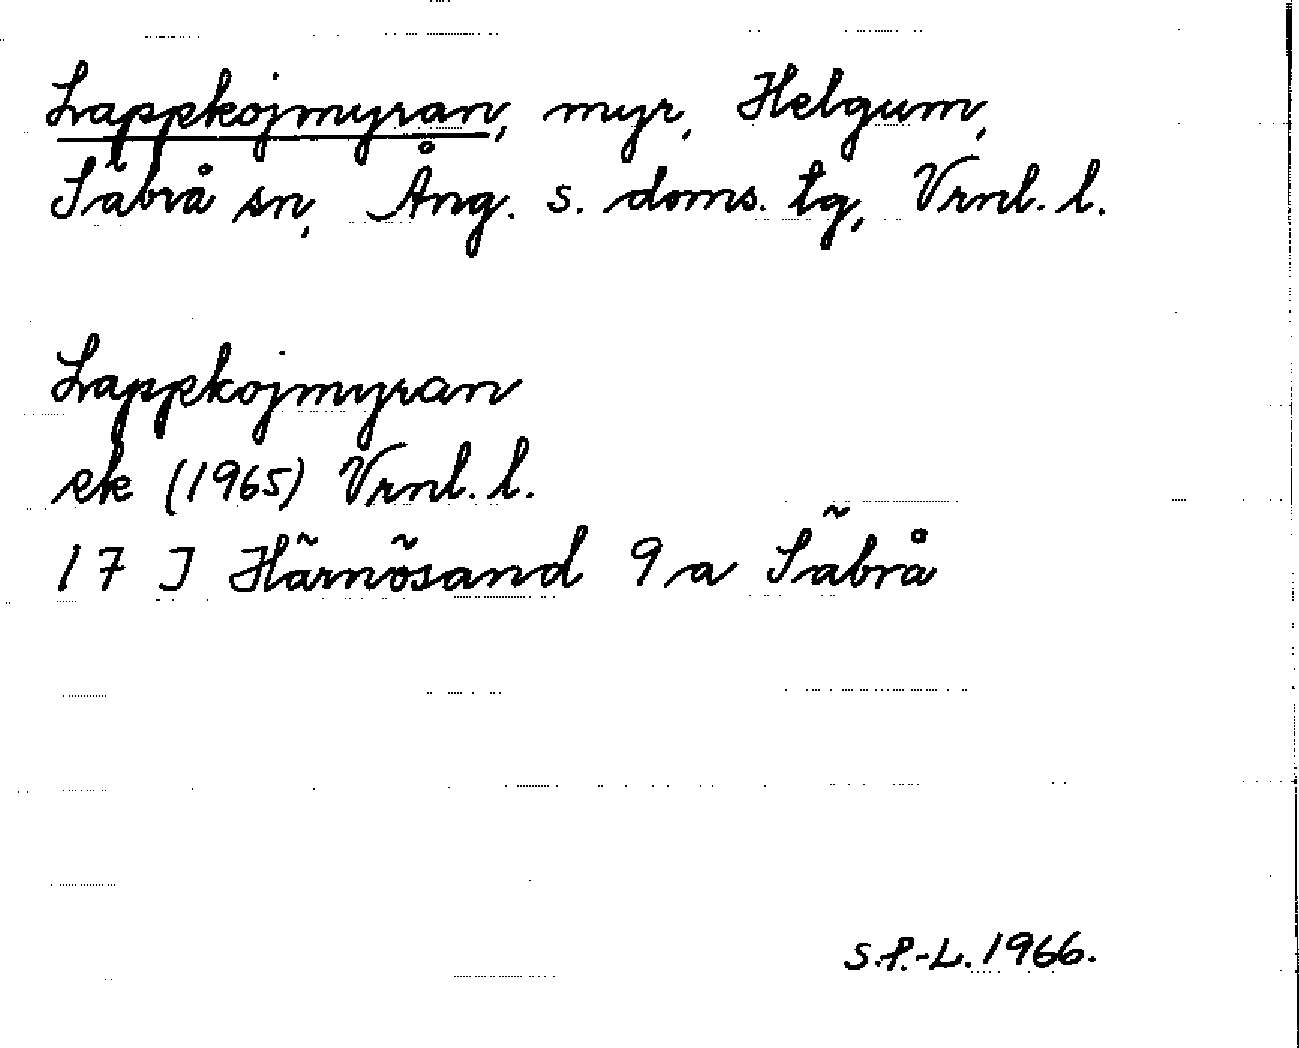 Lappkojmyran, myr, Helgum,
Säbrå sn, Ång. s. doms. tg, Vrnl. l.
Lappkojmyran
ek (1965) Vrnl. l.
17 J Härnösand 9 a Säbrå
S.P.-L. 1966.